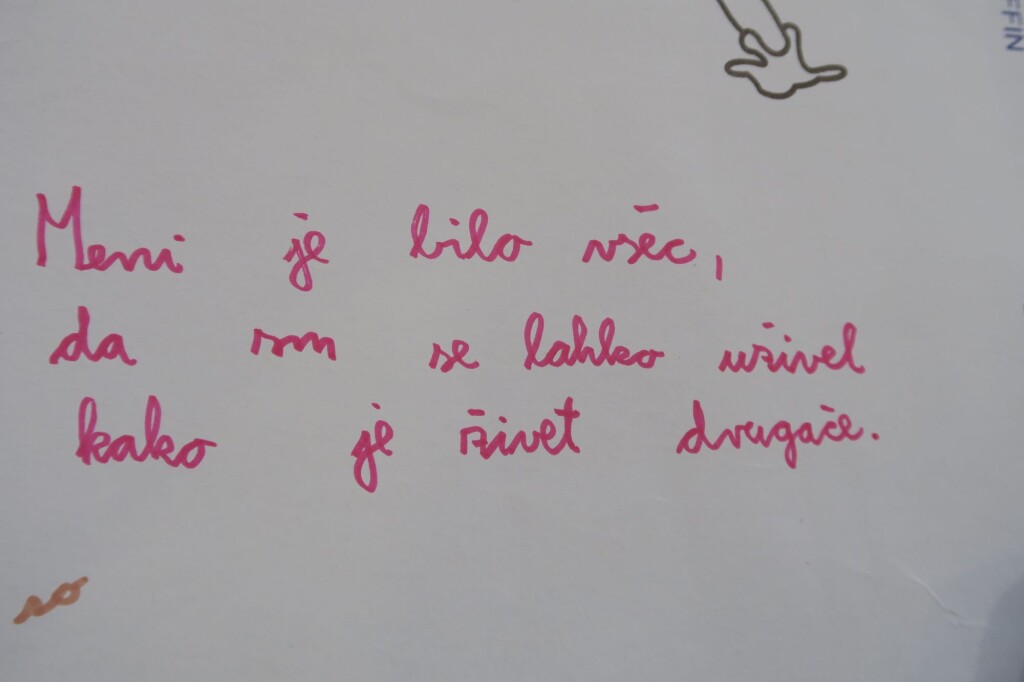 FFIN
Meni je bilo všec,
da sm se lahko uživel
kako je živet drugače.
so